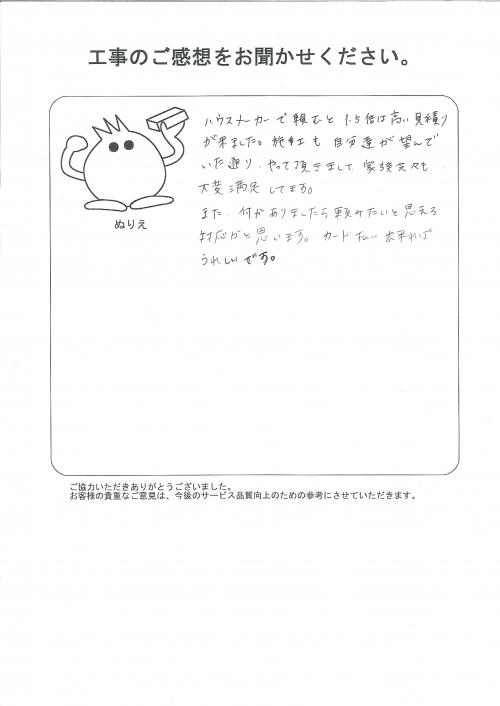 工事のご感想をお聞かせください。
ハウスメーカーで頼むと1.5倍は高い見積り
が来ました。施工も自分達が望んで
いた通り、やって頂きまして、家族共々も
大変満足してます。
また、何かありましたら頼みたいと思える
対応かと思います。カード払い出来れば
うれしいです。
ぬりえ
ご協力いただきありがとうございました。
お客様の貴重なご意見は、今後のサービス品質向上のための参考にさせていただきます。